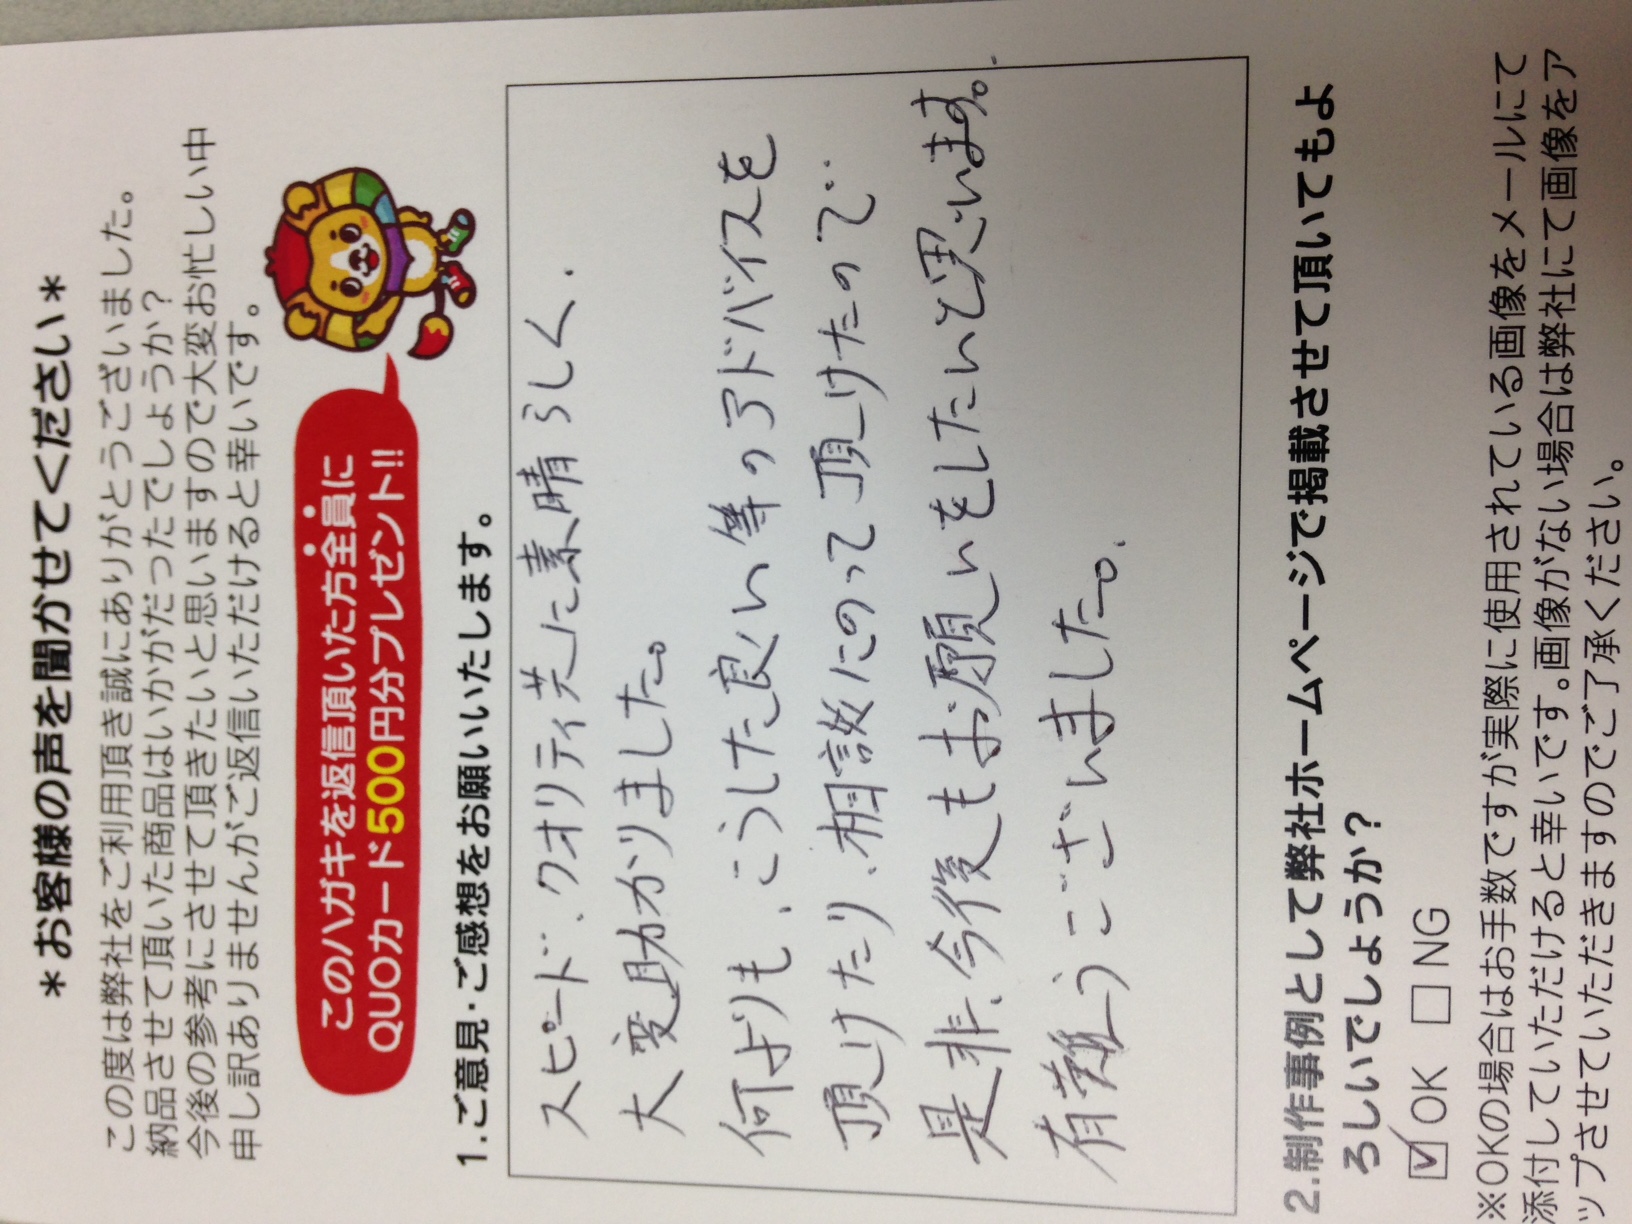 ＊お客様の声を聞かせてください＊
この度は弊社をご利用頂き誠にありがとうございました。
納品させて頂いた商品はいかがだったでしょうか？
今後の参考にさせて頂きたいと思いますので大変お忙しい中
申し訳ありませんがご返信いただけると幸いです。
このハガキを返信頂いた方全員に
QUOカード500円分プレゼント!!
1.ご意見・ご感想をお願いいたします。
スピード、クオリティ共に素晴らしく、
大変助かりました。
何よりも、こうした良い等のアドバイスを
頂けたり、相談にのって頂けたので
是非、今後もお願いをしたいと思います。
有難うございました。
2.制作事例として弊社ホームページで掲載させて頂いてもよ
ろしいでしょうか？
☑OK □NG
※OKの場合はお手数ですが実際に使用されている画像をメールにて
添付していただけると幸いです。画像がない場合は弊社にて画像をア
ップさせていただきますのでご了承ください。